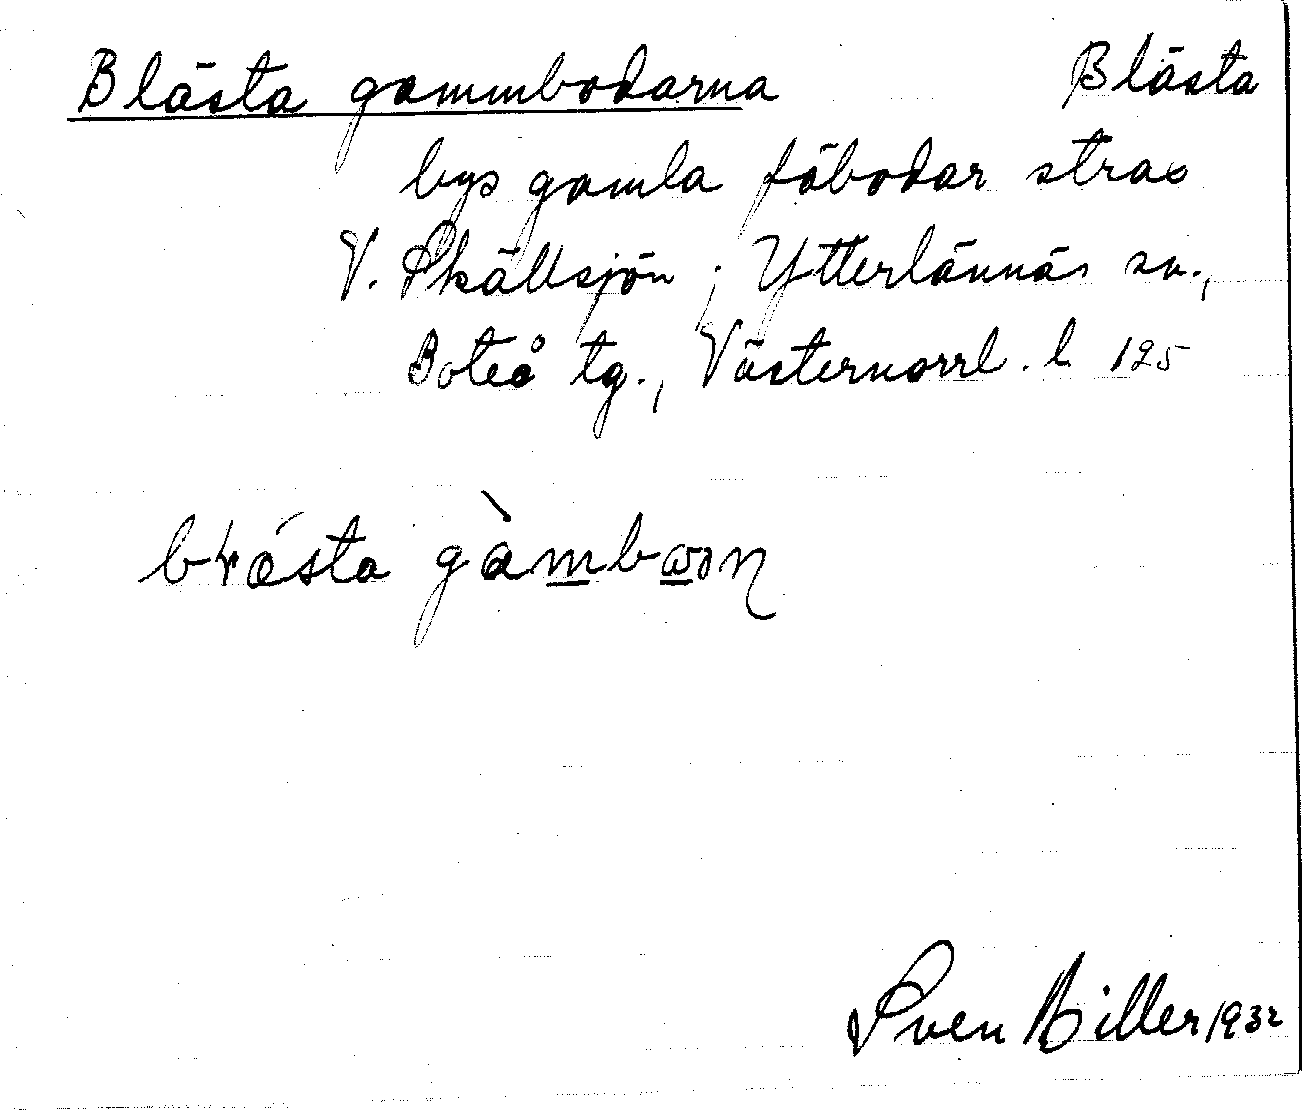 Blästa gammbodarna Blästa
bys gamla fäbodar strax
V. Skällsjön i Ytterlännäs sn.,
Boteå tg., Västernorrl. l. 125
gàmbωn
Sven Hiller 1932